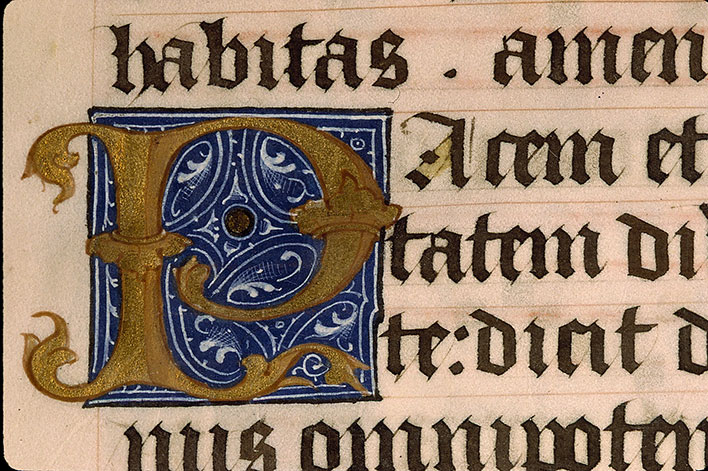 habitas . amen
PAcem et
tatem di
te: dicit d
nus omnipoten